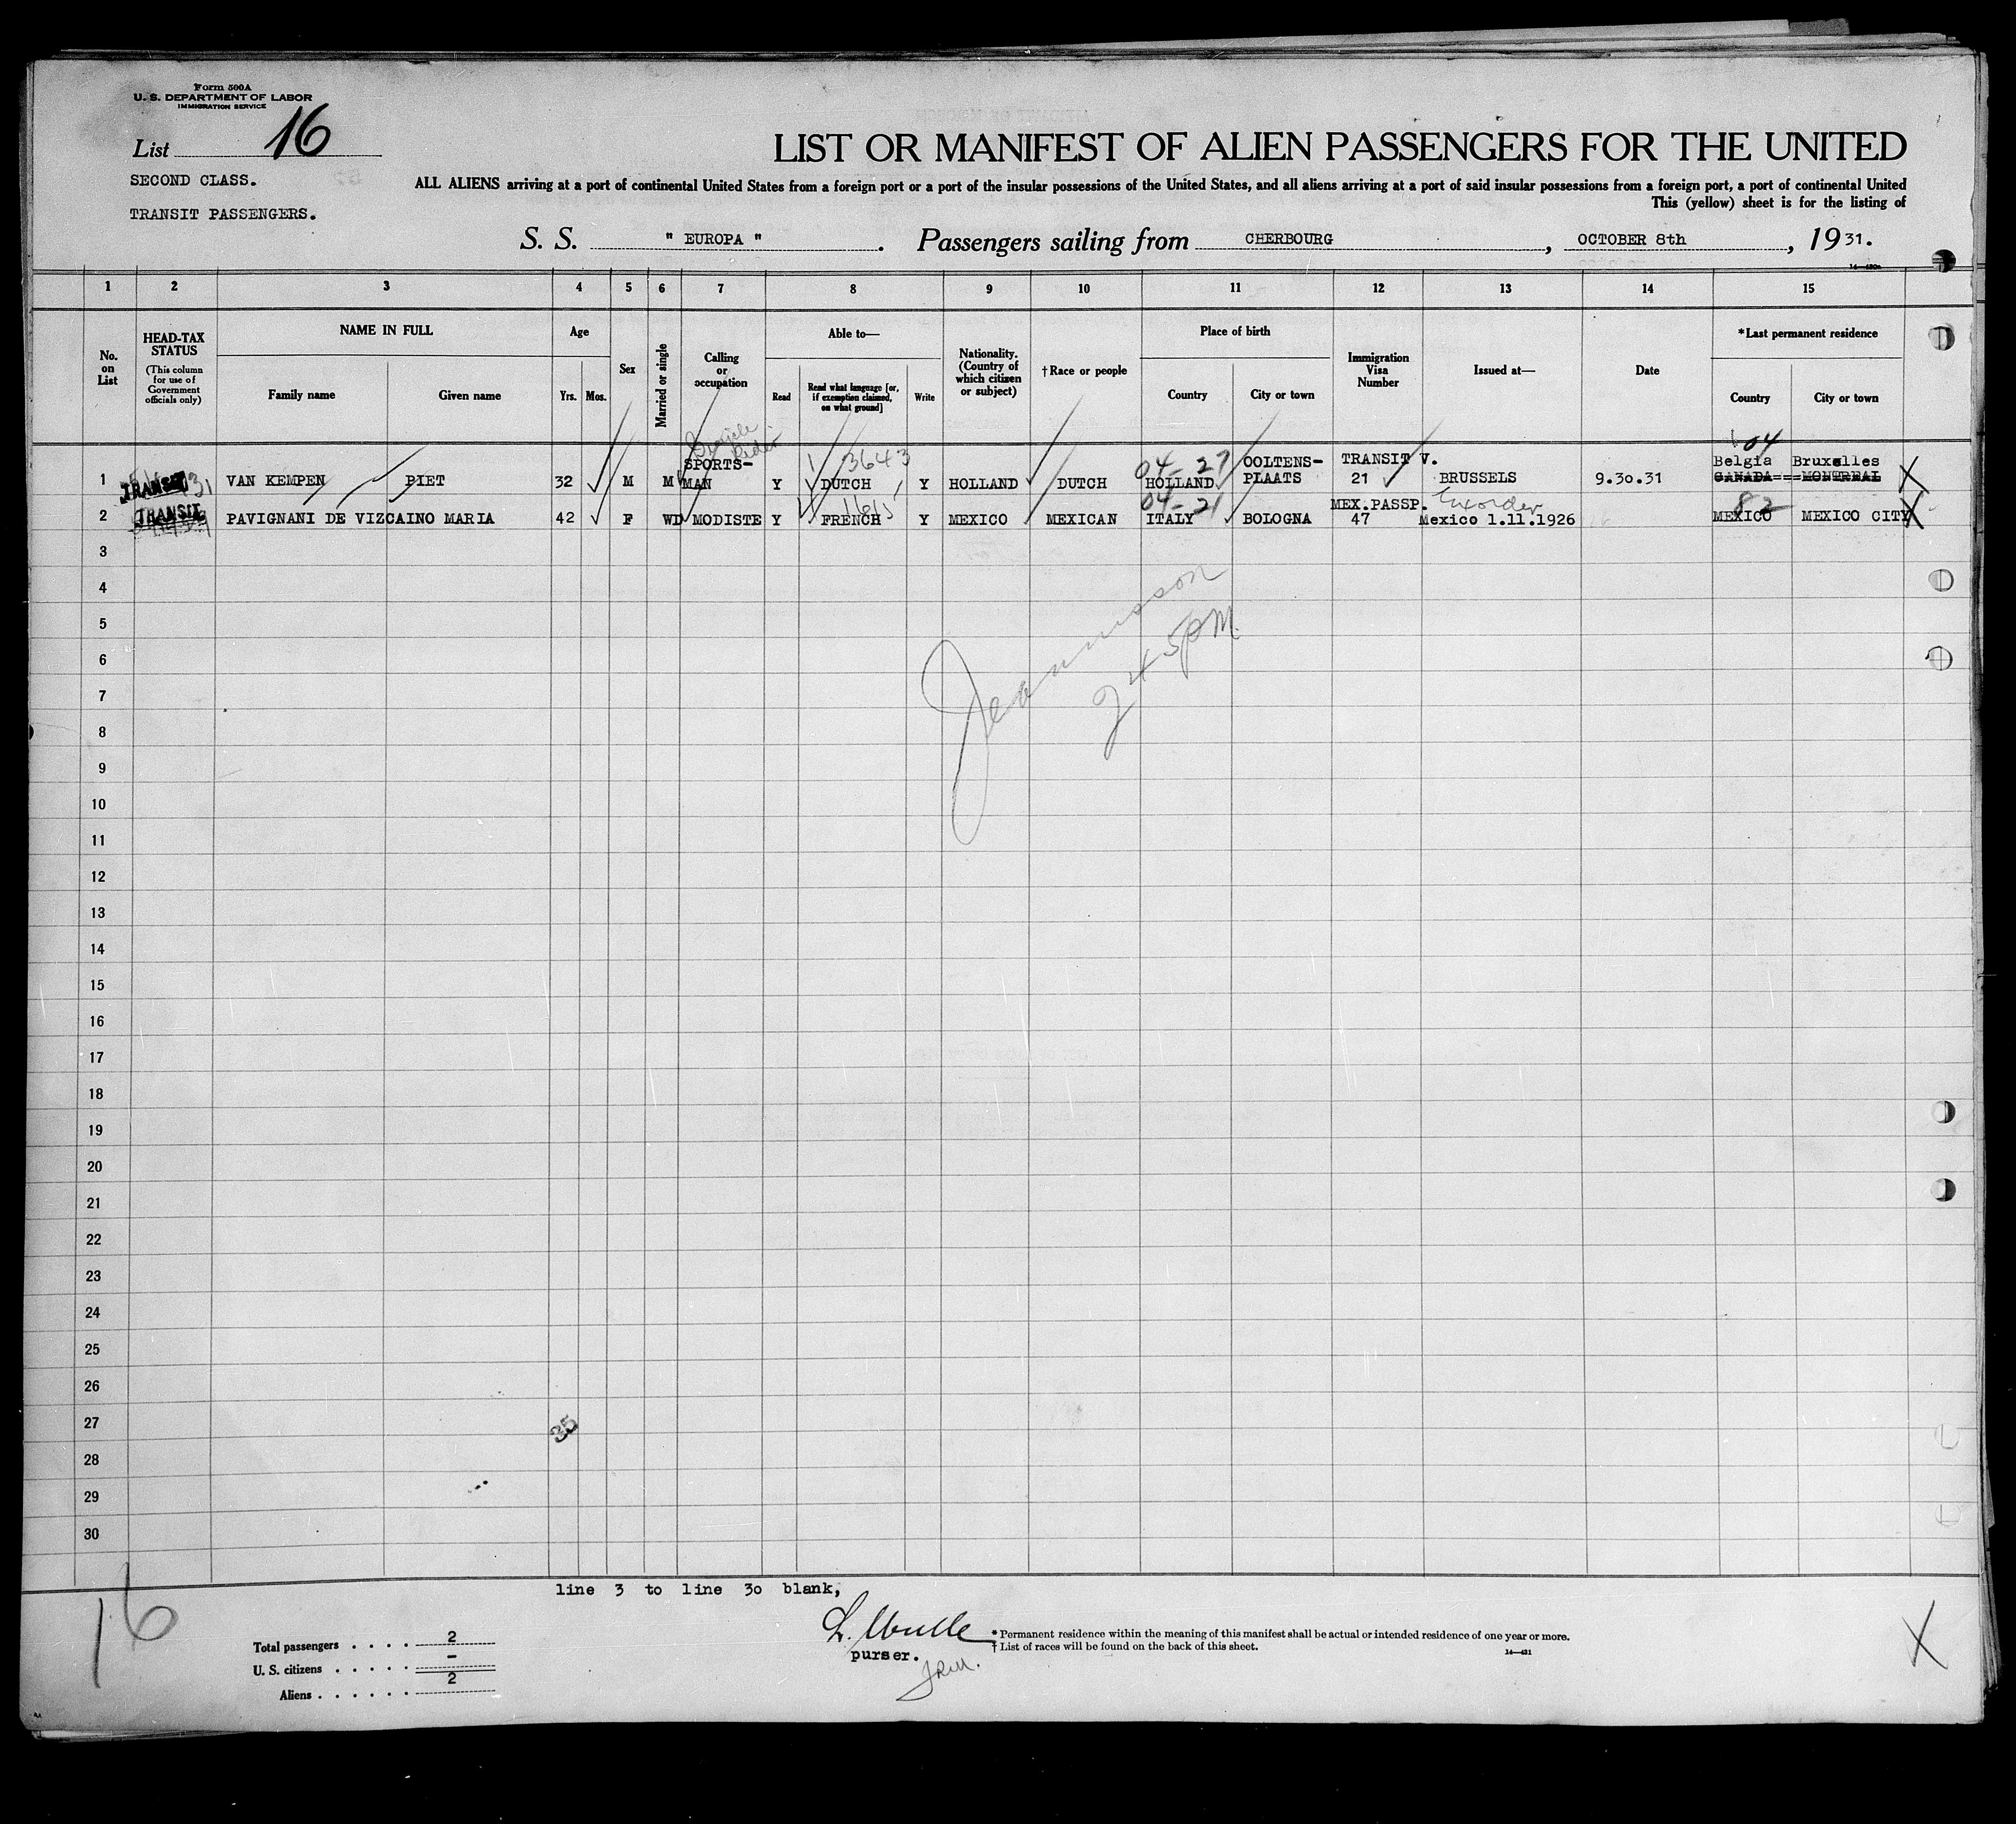 Form 500A
U. S. DEPARTMENT OF LABOR
IMMIGRATION SERVICE
List 16
SECOND CLASS.
TRANSIT PASSENGERS.
LIST OR MANIFEST OF ALIEN PASSENGERS FOR THE UNITED
ALL ALIENS arriving at a port of continental United States from a foreign port or a port of the insular possessions of the United States, and all aliens arriving at a port of said insular possessions from a foreign port, a port of continental United
This (yellow) sheet is for the listing of
S. S. " EUROPA ". Passengers sailing from CHERBOURG, OCTOBER 8th, 1931.
14-430a
1 2 3 4 5 6 7 8 9 10 11 12 13 14 15
No. on List
HEAD-TAX STATUS
(This column for use of Government officials only)
NAME IN FULL
Family name Given name
Age
Yrs. Mos.
Sex
Married or single
Calling or occupation
Able to—
Read
Read what language [or, if exemption claimed, on what ground]
Write
Nationality. (Country of which citizen or subject)
†Race or people
Place of birth
Country City or town
Immigration Visa Number
Issued at—
Date
*Last permanent residence
Country City or town
04
Rider
3643
04-27
1 TRANSIT VAN KEMPEN PIET 32 M M SPORTS-MAN Y DUTCH Y HOLLAND DUTCH HOLLAND OOLTENS-PLAATS TRANSIT V. 21 BRUSSELS 9.30.31 Belgia Bruxelles CANADA===MONTREAL X
04-21
82
2 TRANSIT PAVIGNANI DE VIZCAINO MARIA 42 F WD MODISTE Y FRENCH Y MEXICO MEXICAN ITALY BOLOGNA MEX.PASSP. 47 Mexico 1.11.1926 MEXICO MEXICO CITY X
3
4
5
6
7
8
9
10
11
12
13
14
15
16
17
18
19
20
21
22
23
24
25
26
27
28
29
30
245PM.
35
line 3 to line 30 blank,
16
Total passengers . . . . 2
U. S. citizens . . . . . -
Aliens . . . . . . 2
purser.
* Permanent residence within the meaning of this manifest shall be actual or intended residence of one year or more.
† List of races will be found on the back of this sheet.
14-431
X